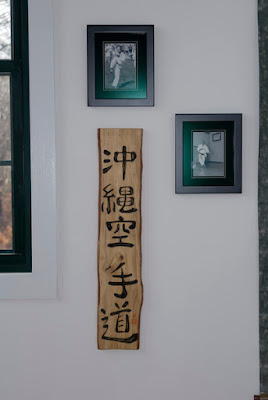 沖縄空手道